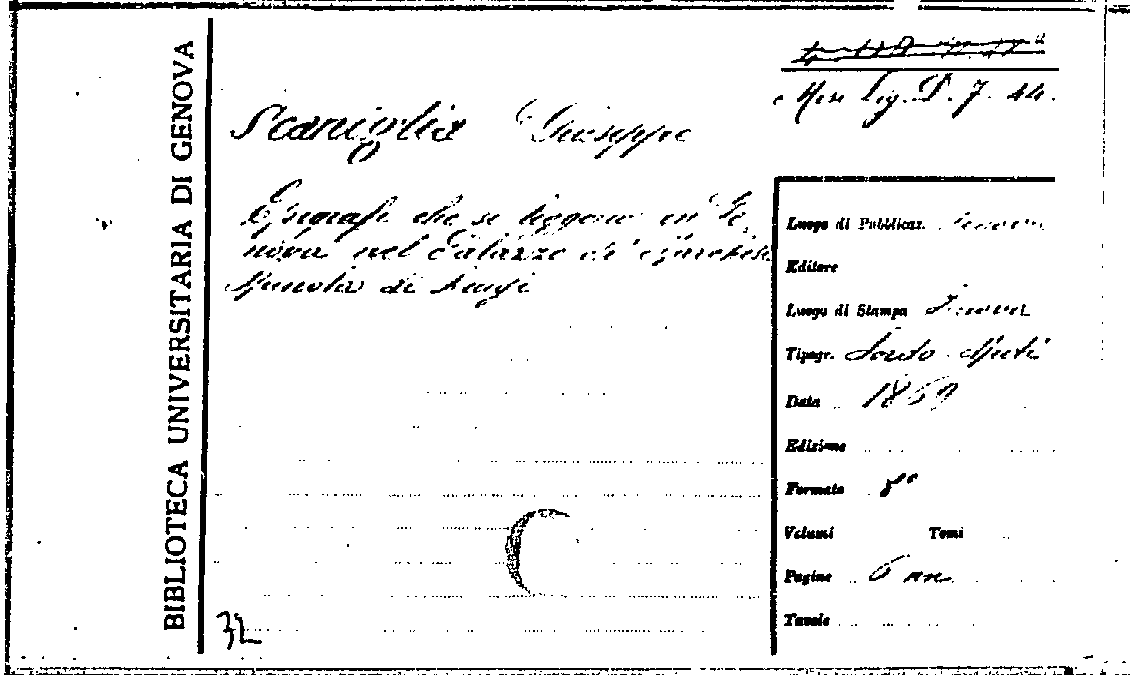 BIBLIOTECA UNIVERSITARIA DI GENOVA
Misc Lig. D. 7. 44.
Scaniglia Giuseppe
Epigrafi che si leggono in Ge
nova nel Palazzo di
Spinola di Luigi
Luogo di Pubblicaz. Genova
Editore
Luogo di Stampa Genova
Tipogr. Sordo-Muti
Data 1869
Edizione
Formato 8°
Volumi Tomi
Pagine 6 nn
Tavole
72